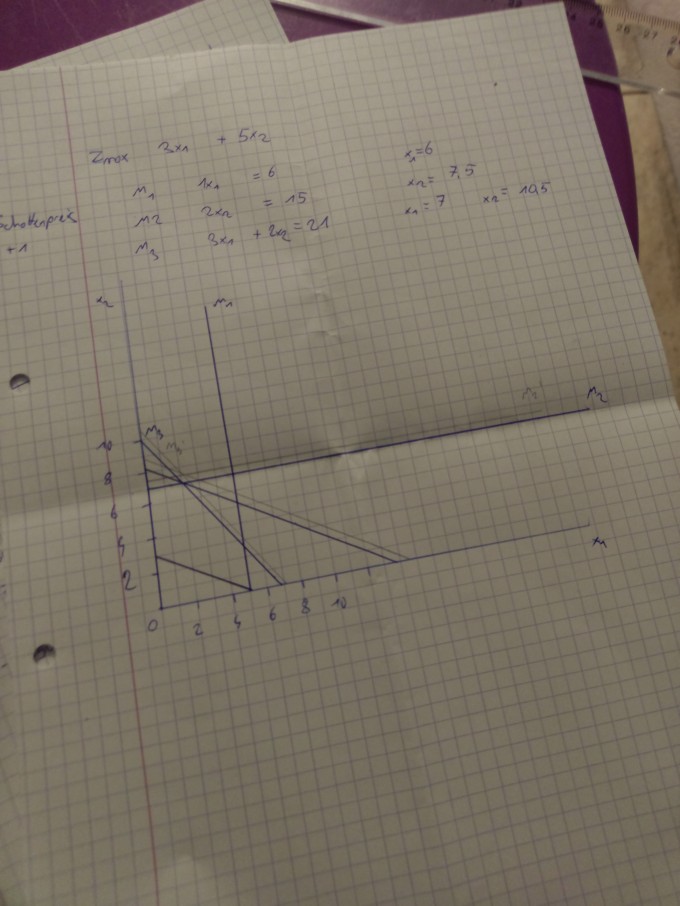 Zmax 3x1 + 5x2
M1 1x1 = 6
M2 2x2 = 15
M3 3x1 + 2x2 = 21
x1=6
x2= 7,5
x1=7 x2= 10,5
Schattenpreis
+1
x2
M1
M2
10
8
6
4
2
0 2 4 6 8 10
x1
26 27